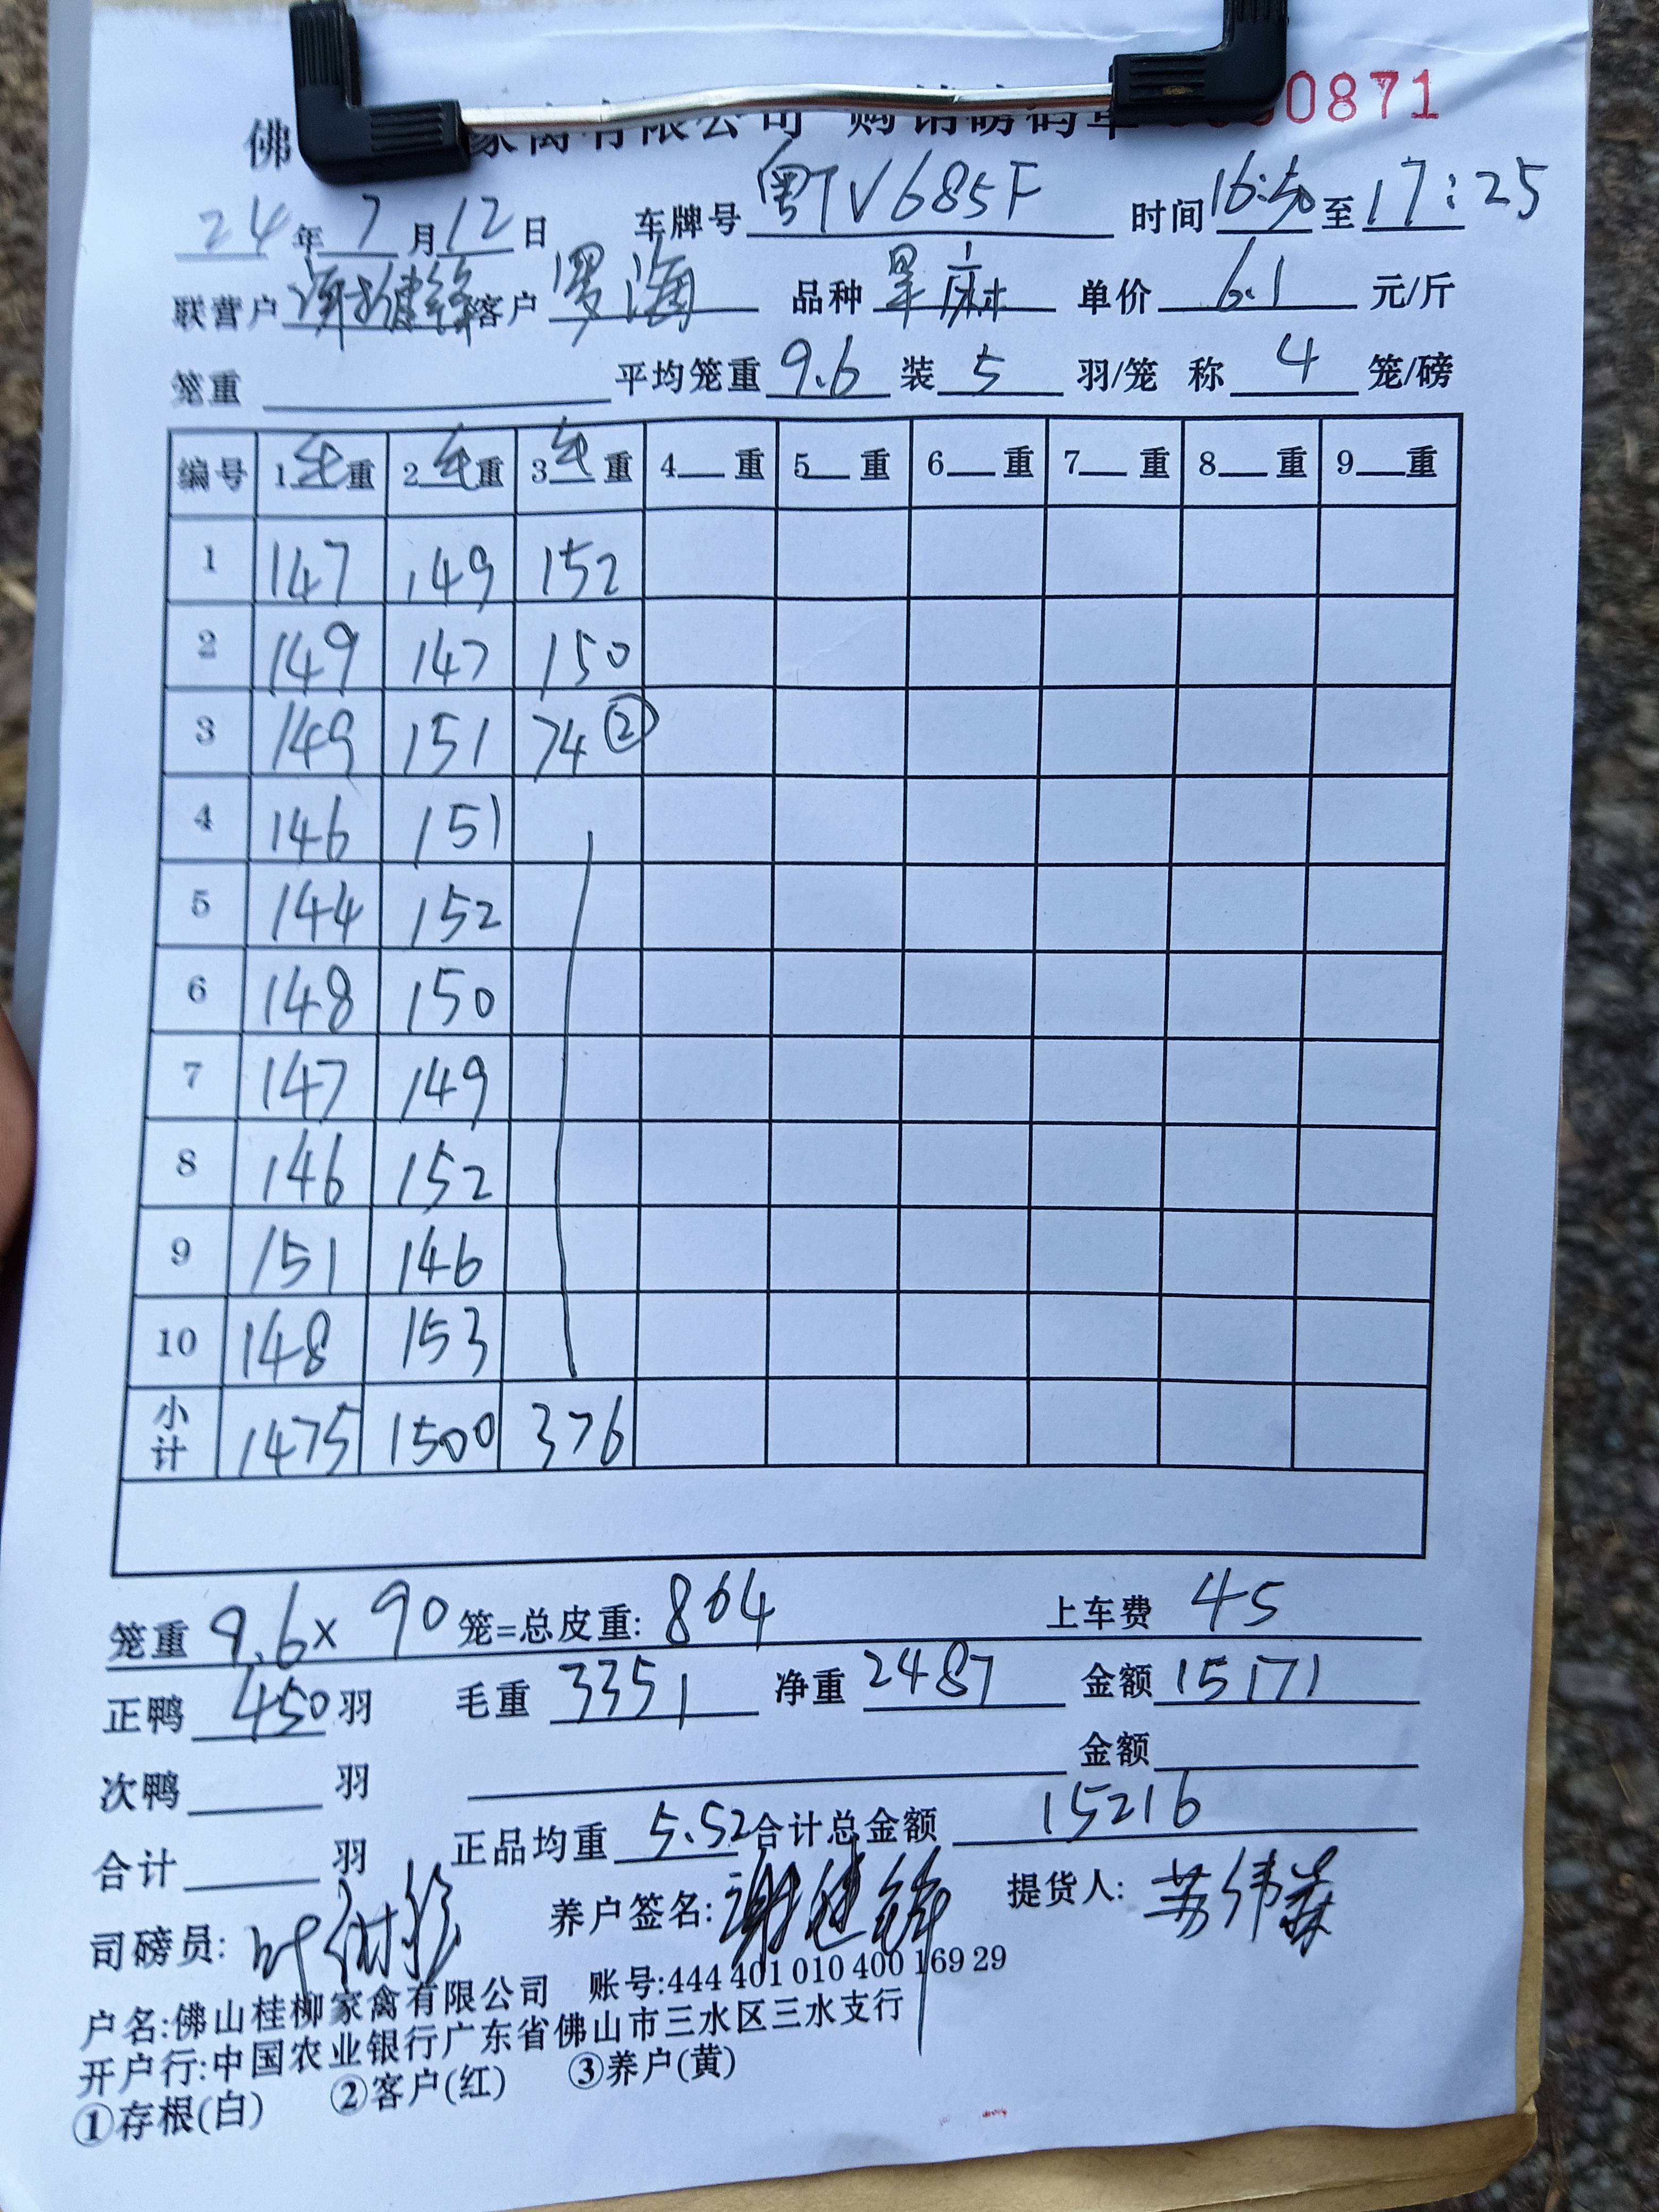 佛 家禽有限公司 购销磅码单 0871
24年7月12日 车牌号 粤TV685F 时间16:50至17:25
联营户 谢健锋 客户 罗海 品种 旱麻 单价 6.1 元/斤
笼重 平均笼重 9.6 装 5 羽/笼 称 4 笼/磅
编号 1毛重 2毛重 3毛重 4 重 5 重 6 重 7 重 8 重 9 重
1 147 149 152
2 149 147 150
3 149 151 74 ②
4 146 151
5 144 152
6 148 150
7 147 149
8 146 152
9 151 146
10 148 153
小计 1475 1500 376
笼重 9.6 x 90 笼=总皮重: 864 上车费 45
正鸭 450 羽 毛重 3351 净重 2487 金额 15171
次鸭 羽 金额
合计 羽 正品均重 5.52 合计总金额 15216
司磅员: 叶 养户签名: 谢健锋 提货人: 苏伟
户名:佛山桂柳家禽有限公司 账号:444 401 010 400 169 29
开户行:中国农业银行广东省佛山市三水区三水支行
①存根(白) ②客户(红) ③养户(黄)